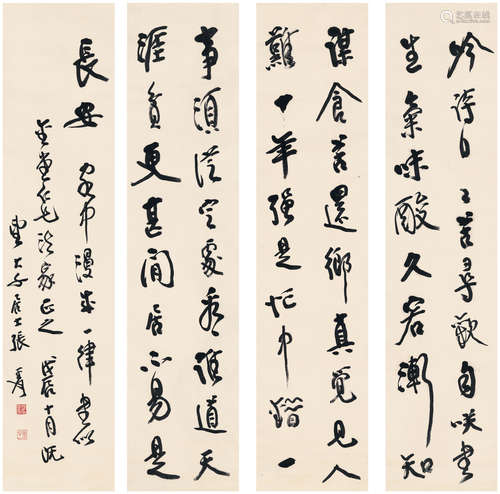 吟诗日日苦寻欢自咲书
生气味酸久客渐知
谋食苦还乡真觉见人
难一年强是忙中错一
事须从定处看谁道天
涯贫更甚闲居不易是
長安
客中漫成一律书似
仁兄法家正之 戊辰十月既
大千居士張爰